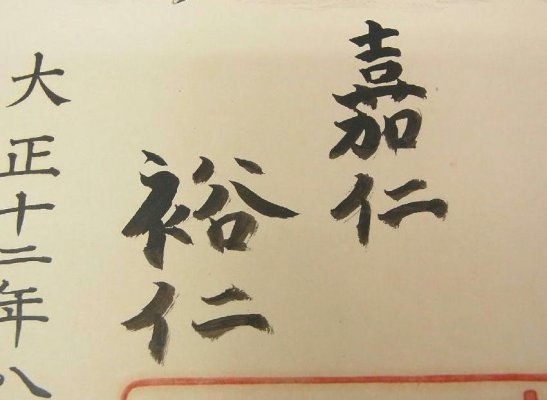 嘉仁
裕仁
大正十二年八